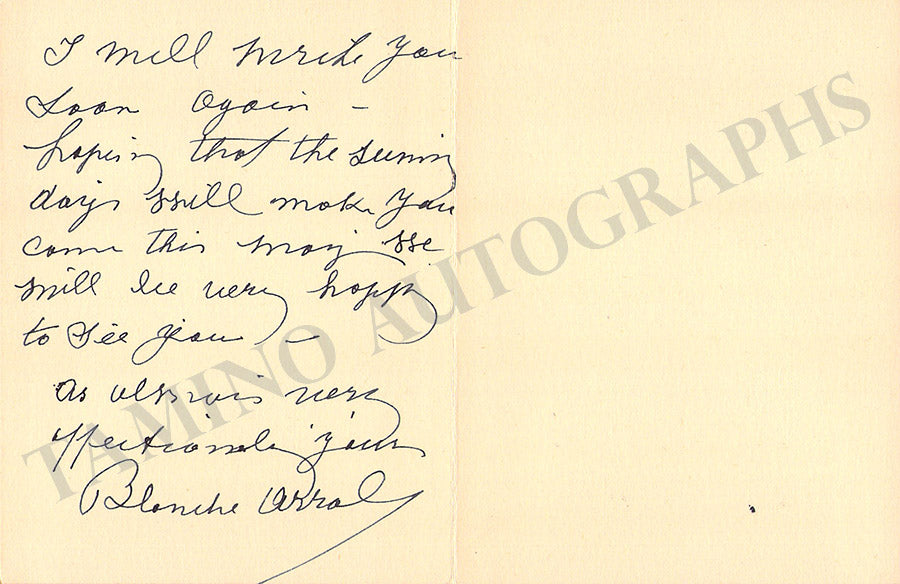 I will write you
soon again –
hoping that the sunny
days will make you
come this way we
will be very happy
to see you –
as always very
affectionately yours
Blanche Arral
TAMINO AUTOGRAPHS